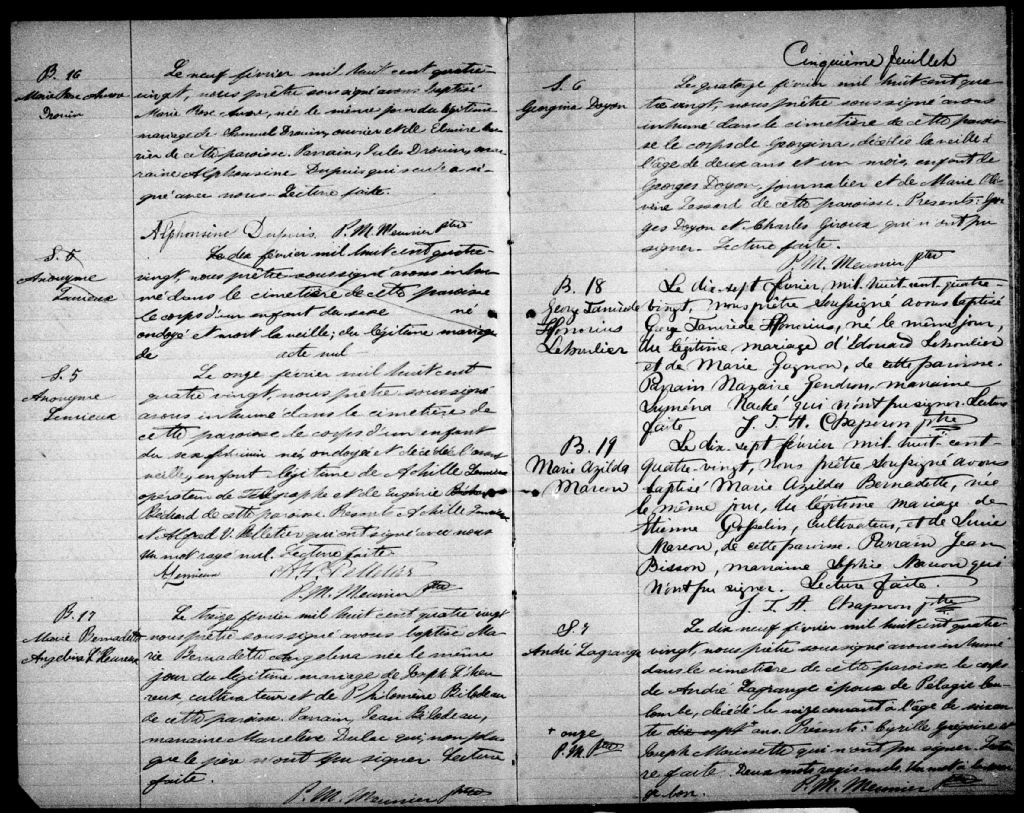 B. 16
Marie Rose Anna
Drouin
Le neuf février mil huit cent quatre-
vingt, nous prêtre soussigné avons baptisé
Marie Rose Anna, née le même jour du légitime
mariage de Drouin, ouvrier et de Elmire
de cette paroisse. Parrain, Jules Drouin, mar-
raine Alphonsine Dupuis qui seule a si-
gné avec nous. Lecture faite.
Alphonsine Dupuis. P. M. Meunier Ptre
S. 5
Anonyme
Lemieux
Le dix février mil huit cent quatre-
vingt, nous prêtre soussigné avons inhu-
mé dans le cimetière de cette paroisse
le corps d'un enfant de sexe né
ondoyé et mort la veille; du légitime mariage
de acte nul
S. 5
Anonyme
Lemieux
Le onze février mil huit cent
quatre vingt, nous prêtre soussigné
avons inhumé dans le cimetière de
cette paroisse le corps d'un enfant
du sexe féminin né ondoyé et décédé l'avant
veille, enfant légitime de Achille Lemieux
opérateur de Télégraphe et de Eugénie
Béchard de cette paroisse. Présents: Achille Lemieux
et Alfred V. Pelletier qui ont signé avec nous
Un mot rayé nul. Lecture faite.
A Lemieux A. V. Pelletier
P. M. Meunier Ptre
B. 17
Marie Bernadette
Angelina L'Heureux
Le treize février mil huit cent quatre vingt
nous prêtre soussigné avons baptisé Ma-
rie Bernadette Angelina née le même
jour du légitime mariage de Joseph L'Heu-
reux, cultivateur et de Philomène Bilodeau
de cette paroisse. Parrain, Jean Bilodeau,
marraine Marceline Dulac qui, non plus
que le père n'ont su signer. Lecture
faite.
P. M. Meunier Ptre
Cinquième feuillet
S. 6
Georgina Doyon
Le quatorze février mil huit cent qua-
tre vingt, nous prêtre soussigné avons
inhumé dans le cimetière de cette parois-
se le corps de Georgina, décédée la veille à
l'âge de deux ans et un mois, enfant de
Georges Doyon, journalier et de Marie Oli-
vière Lessard de cette paroisse. Présents: Geor-
ges Doyon et Charles Giroux qui n'ont pu
signer. Lecture faite.
P. M. Meunier Ptre
B. 18
Georg Tancrède
Honorius
Lehoulier
Le dix-sept février, mil-huit-cent-quatre-
vingt, nous prêtre soussigné avons baptisé
Georg Tancrède Honorius, né le même jour,
du légitime mariage d'Edouard Lehoulier
et de Marie Gagnon, de cette paroisse.
Parrain Nazaire Gendron, marraine
Luména qui n'ont pu signer. Lecture
faite J. T. A. Chaperon ptre
B. 19
Marie Azilda
Marcou
Le dix-sept février mil-huit-cent-
quatre-vingt, nous prêtre soussigné avons
baptisé Marie Azilda Bernadette, née
le même jour, du légitime mariage de
Etienne Gosselin, cultivateur, et de Lucie
Marcou, de cette paroisse. Parrain Jean
Bisson, marraine Sophie Marcou qui
n'ont pu signer. Lecture faite.
J. T. A. Chaperon ptre
S. 7
André Lagrange
Le dix neuf février mil huit cent quatre
vingt, nous prêtre soussigné avons inhumé
dans le cimetière de cette paroisse le corps
de André Lagrange époux de Pélagie Cou-
lombe, décédé le seize courant à l'âge de soixan-
te dix sept + ans. Présents: Cyrille Grégoire et
Joseph Morissette qui n'ont pu signer. Lectu-
re faite. Deux mots rayés nuls. Un mot
ge bon. P. M. Meunier Ptre
+ onze
P. M. Ptre